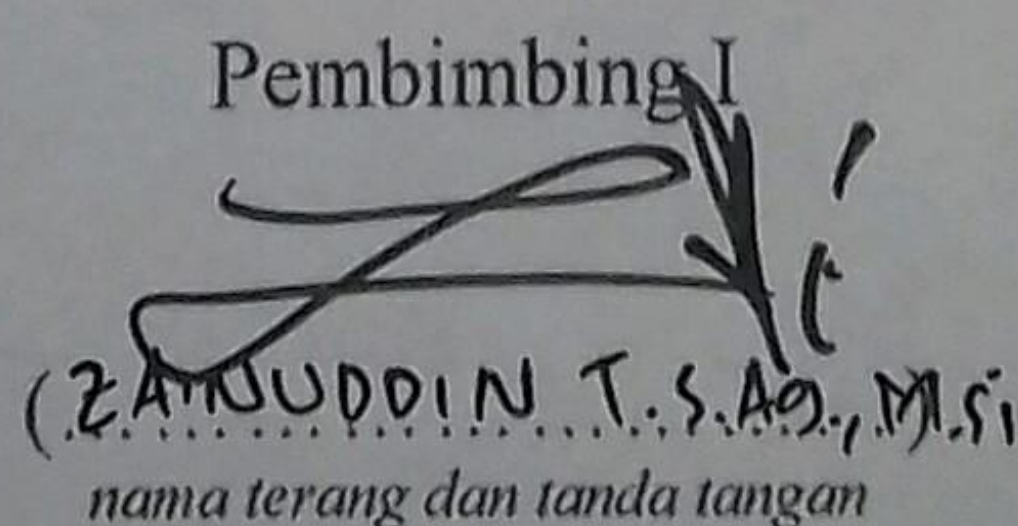 Pembimbing I
(ZAINUDDIN T. S.Ag., M.Si
nama terang dan tanda tangan